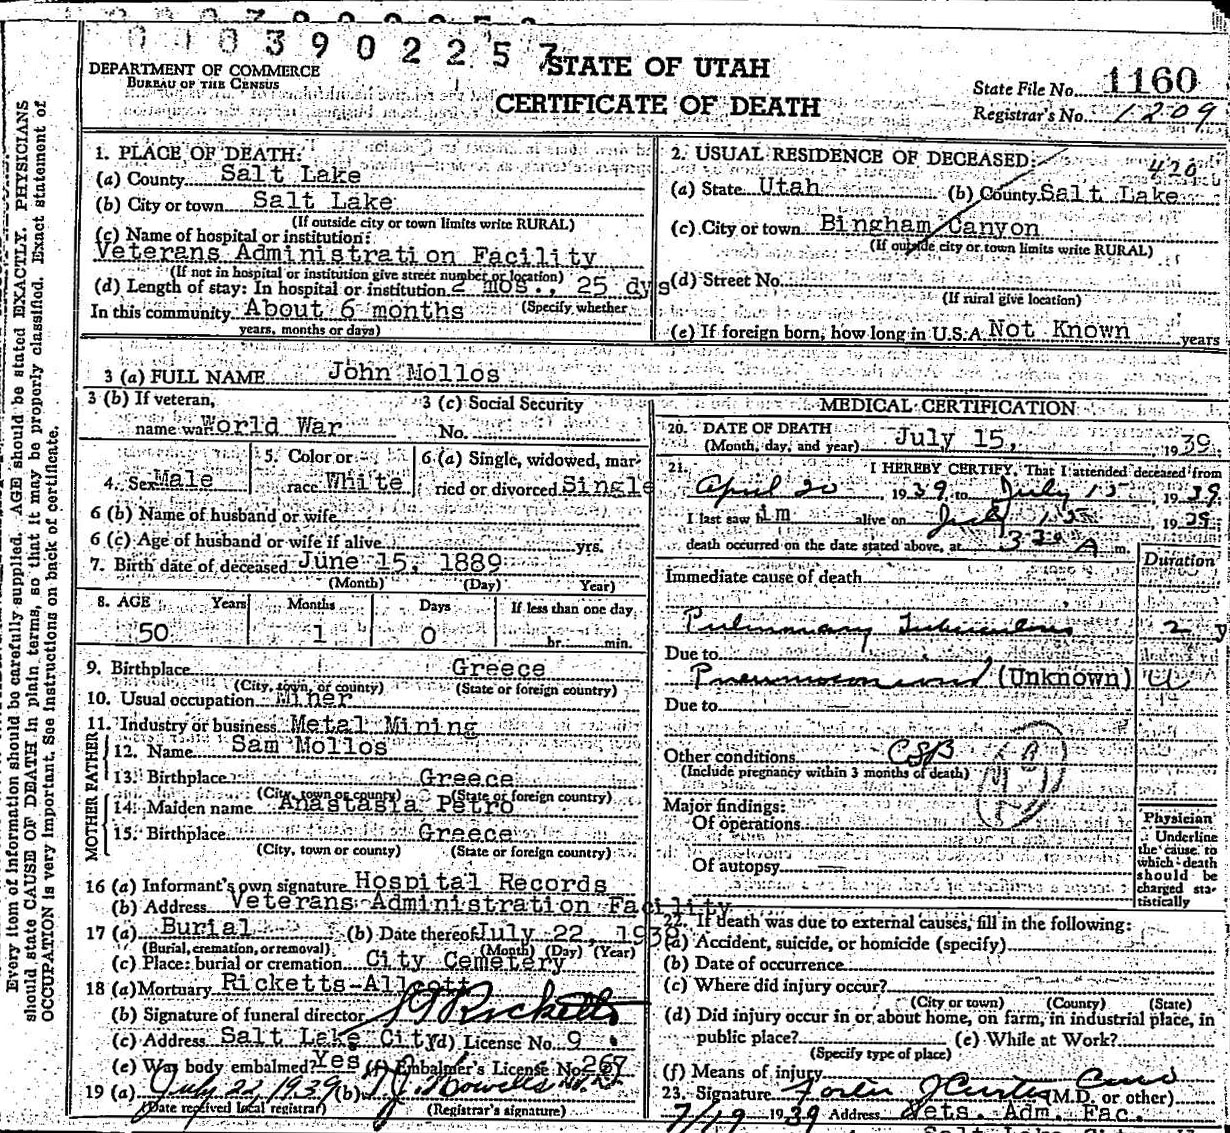 0 1 8 3 9 0 2 2 5 7
STATE OF UTAH
CERTIFICATE OF DEATH
DEPARTMENT OF COMMERCE
BUREAU OF THE CENSUS
State File No. 1160
Registrar's No. 1209
Every item of information should be carefully supplied. AGE should be stated EXACTLY. PHYSICIANS
should state CAUSE OF DEATH in plain terms, so that it may be properly classified. Exact statement of
OCCUPATION is very important. See instructions on back of certificate.
1. PLACE OF DEATH:
(a) County Salt Lake
(b) City or town Salt Lake
(If outside city or town limits write RURAL)
(c) Name of hospital or institution:
Veterans Administration Facility
(If not in hospital or institution give street number or location)
(d) Length of stay: In hospital or institution 2 mos., 25 dys
(Specify whether
In this community About 6 months
years, months or days)
2. USUAL RESIDENCE OF DECEASED:
420
(a) State Utah (b) County Salt Lake
(c) City or town Bingham Canyon
(If outside city or town limits write RURAL)
(d) Street No.
(If rural give location)
(e) If foreign born, how long in U.S.A. Not Known years
3 (a) FULL NAME John Mollos
3 (b) If veteran,
name war World War
3 (c) Social Security
No.
4. Sex Male
5. Color or
race White
6 (a) Single, widowed, mar-
ried or divorced Single
6 (b) Name of husband or wife
6 (c) Age of husband or wife if alive yrs.
7. Birth date of deceased June 15, 1889
(Month) (Day) Year)
8. AGE Years Months Days If less than one day
50 1 0 hr. min.
9. Birthplace Greece
(City, town, or county) (State or foreign country)
10. Usual occupation Miner
11. Industry or business Metal Mining
FATHER
12. Name Sam Mollos
13. Birthplace Greece
(City, town or county) (State or foreign country)
MOTHER
14. Maiden name Anastasia Petro
15. Birthplace Greece
(City, town or county) (State or foreign country)
16 (a) Informant's own signature Hospital Records
(b) Address Veterans Administration Facility
17 (a) Burial (b) Date thereof July 22, 1939
(Burial, cremation, or removal) (Month) (Day) (Year)
(c) Place: burial or cremation City Cemetery
18 (a) Mortuary Ricketts-Allcott
(b) Signature of funeral director Ricketts
(c) Address Salt Lake City (d) License No. 9
(e) Was body embalmed? Yes (f) Embalmer's License No. 267
19 (a) July 22, 1939 (b)
(Date received local registrar) (Registrar's signature)
MEDICAL CERTIFICATION
20. DATE OF DEATH
(Month, day, and year) July 15, 1939
21. I HEREBY CERTIFY, That I attended deceased from
April 20, 1939 to July 15, 1939
I last saw him alive on July 15, 1939;
death occurred on the date stated above, at 3 30 A m.
Duration
Immediate cause of death
Pulmonary Tuberculosis 2 y
Due to
(Unknown) U
Due to
Other conditions
(Include pregnancy within 3 months of death)
Major findings:
Of operations
Of autopsy
Physician
Underline
the cause to
which death
should be
charged sta-
tistically
22. If death was due to external causes, fill in the following:
(a) Accident, suicide, or homicide (specify)
(b) Date of occurrence
(c) Where did injury occur?
(City or town) (County) (State)
(d) Did injury occur in or about home, on farm, in industrial place, in
public place? (e) While at Work?
(Specify type of place)
(f) Means of injury
23. Signature Foster J Curtis (M.D. or other)
7/19 1939 Address Vets. Adm. Fac.